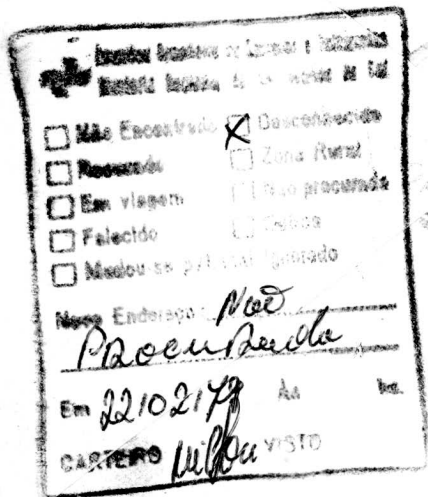 Empresa Brasileira de Correios e Telégrafos
Diretoria Regional de
Não Encontrado X Desconhecido
Recusado Zona Rural
Em viagem Não procurado
Falecido
Mudou-se p/ Ignorado
Novo Endereço: Não
Procurado
Em 22102178 Às hs.
CARTEIRO Wilson VISTO